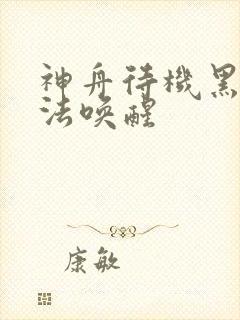 神舟待機黑
法喚醒
康敏